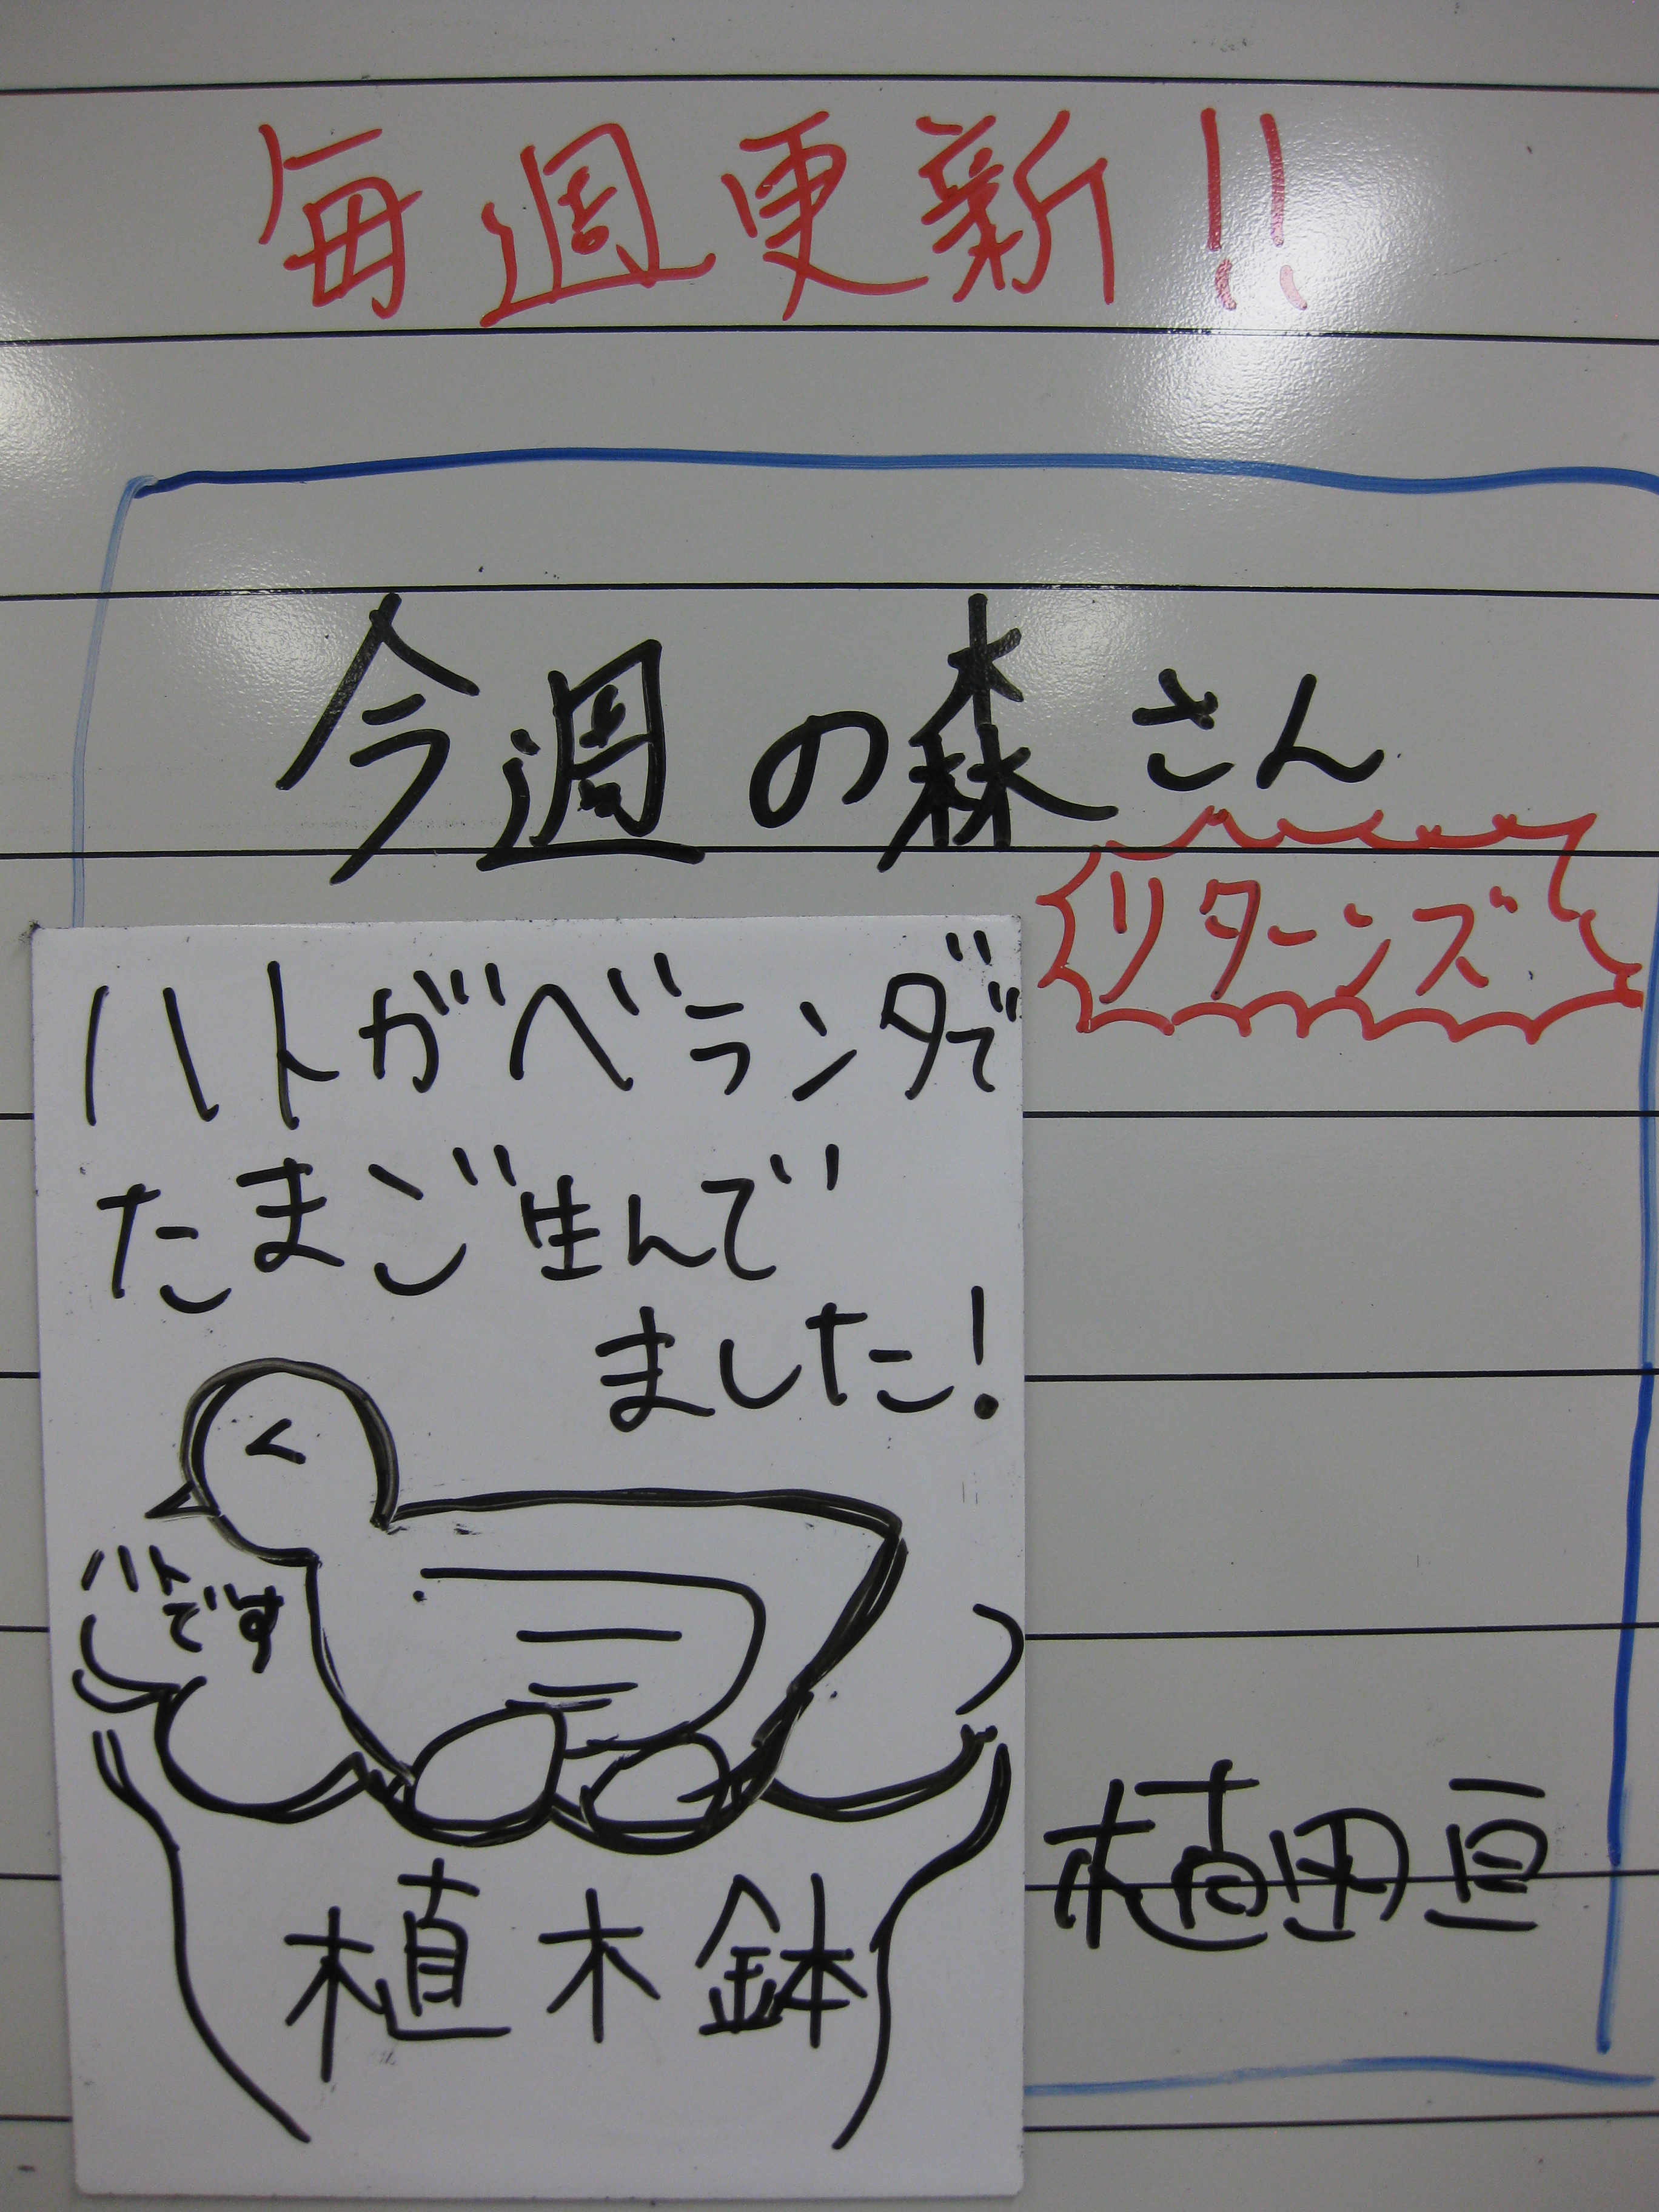 毎週更新!!
今週の森さん
リターンズ
ハトがベランダで
たまご生んで
ました!
ハト
です
植木鉢